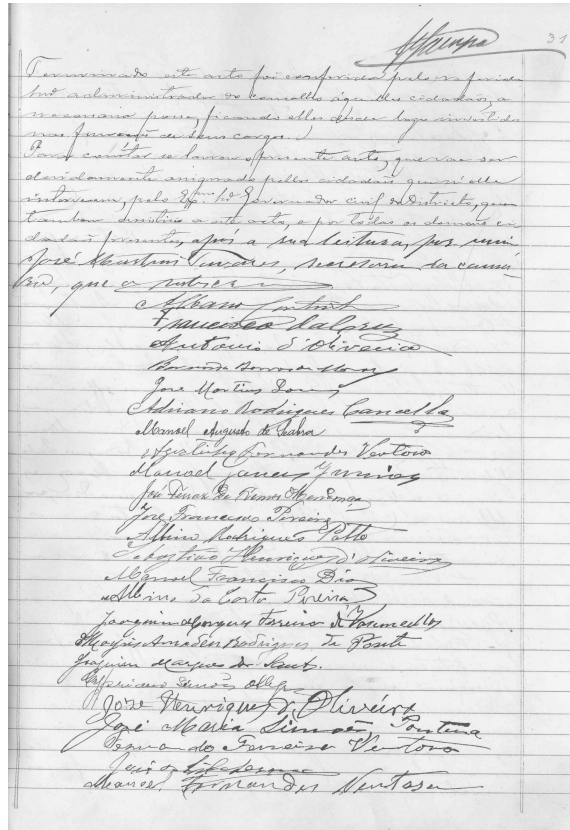 31
Terminado este acto foi conferida pelo referido
Snr administrador do concelho áquelles cidadãos, a
necessaria posse, ficando elles desde logo investidos
nas funcções de seus cargos.
Para constar se lavrou o presente auto, que vae ser
devidamente assignado pellos cidadãos que n'elle
intervieram, pelo Exmo Snr Governador civil do districto, que
tambem assistiu a este acto, e por todos os demais ci-
dadãos presentes, após a sua leitura, por mim
José Martins Tavares, secretario da cama-
ra, que o subscrevi
Albano Coutinho
Francisco da Cruz
Antonio d'Oliveira
José Martins
Adriano Rodrigues Cancella
Manoel Augusto de Seabra
Agostinho Fernandes Ventosa
Manoel
José Ferraz de
José Francisco Pereira
Albino Rodrigues Patto
Sebastião Henriques d'Oliveira
Manoel Francisco Dias
Albino da Costa Pereira
Joaquim Marques Ferreira de Vasconcellos
Amadeu Rodrigues da Ponte
Joaquim Marques dos Santos.
Cypriano Simões
José Henriques d'Oliveira
José Maria Simões
Fernando Ferreira Ventosa
Manoel Fernandes Ventosa